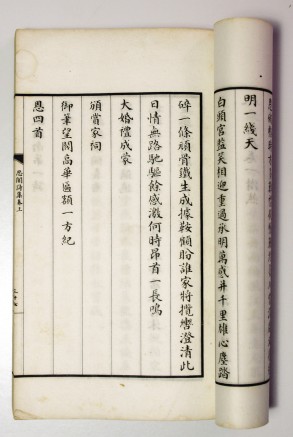 明一綫天
白頭宮監笑相迎重過承明萬感并千里雄心塵踏
碎一條頑骨鐵生成據鞍顧盼誰家將攬轡澄清此
日情無路馳驅餘感激何時昂首一長鳴
大婚禮成蒙
頒賞家祠
御筆望閣高華匾額一方紀
恩四首
思闇詩集卷上
三十七